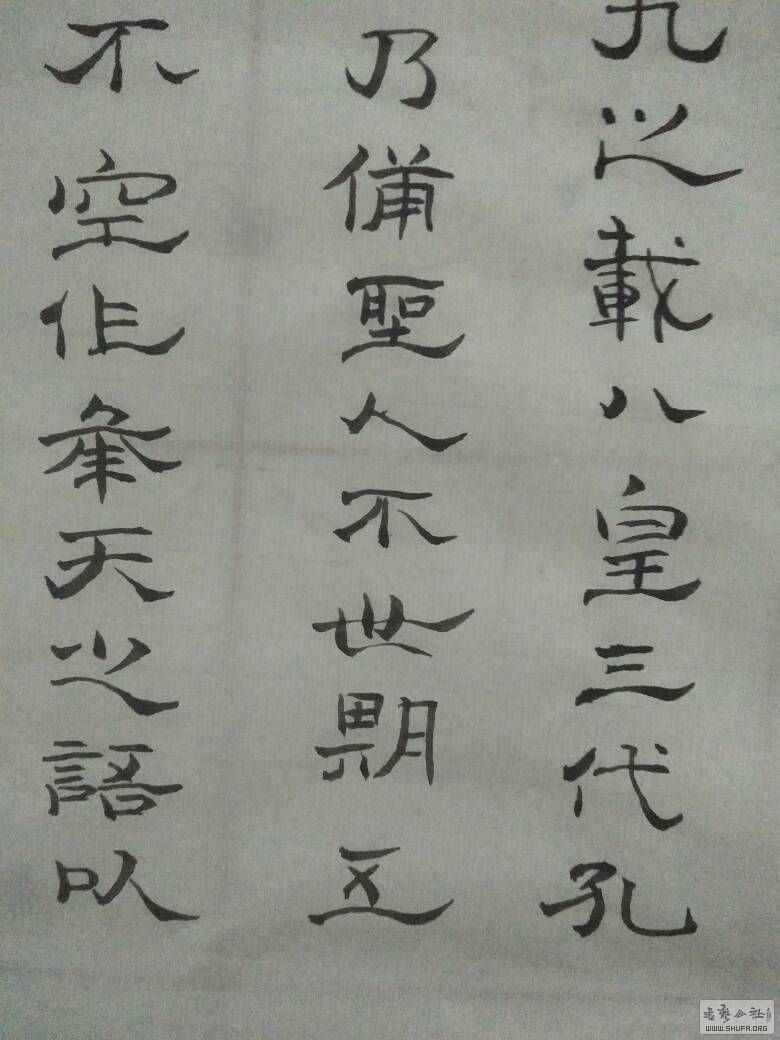 九之載八皇三代孔
乃備聖人不世期五
不空作承天之語以
書藝公社
WWW.SHUFA.ORG